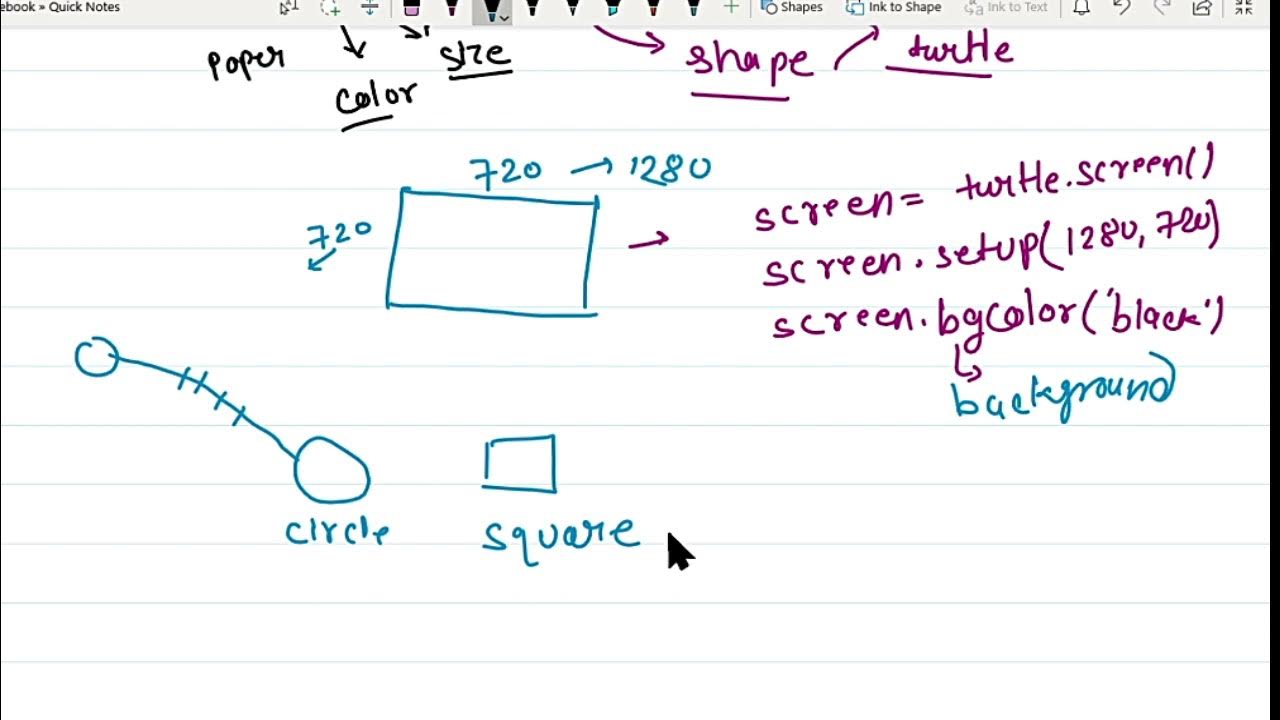 ebook » Quick Notes
Shapes
Ink to Shape
Ink to Text
paper
size
color
shape
turtle
720 → 1280
720
screen= turtle.screen()
screen.setup(1280, 720)
screen.bgcolor('black')
background
circle
square